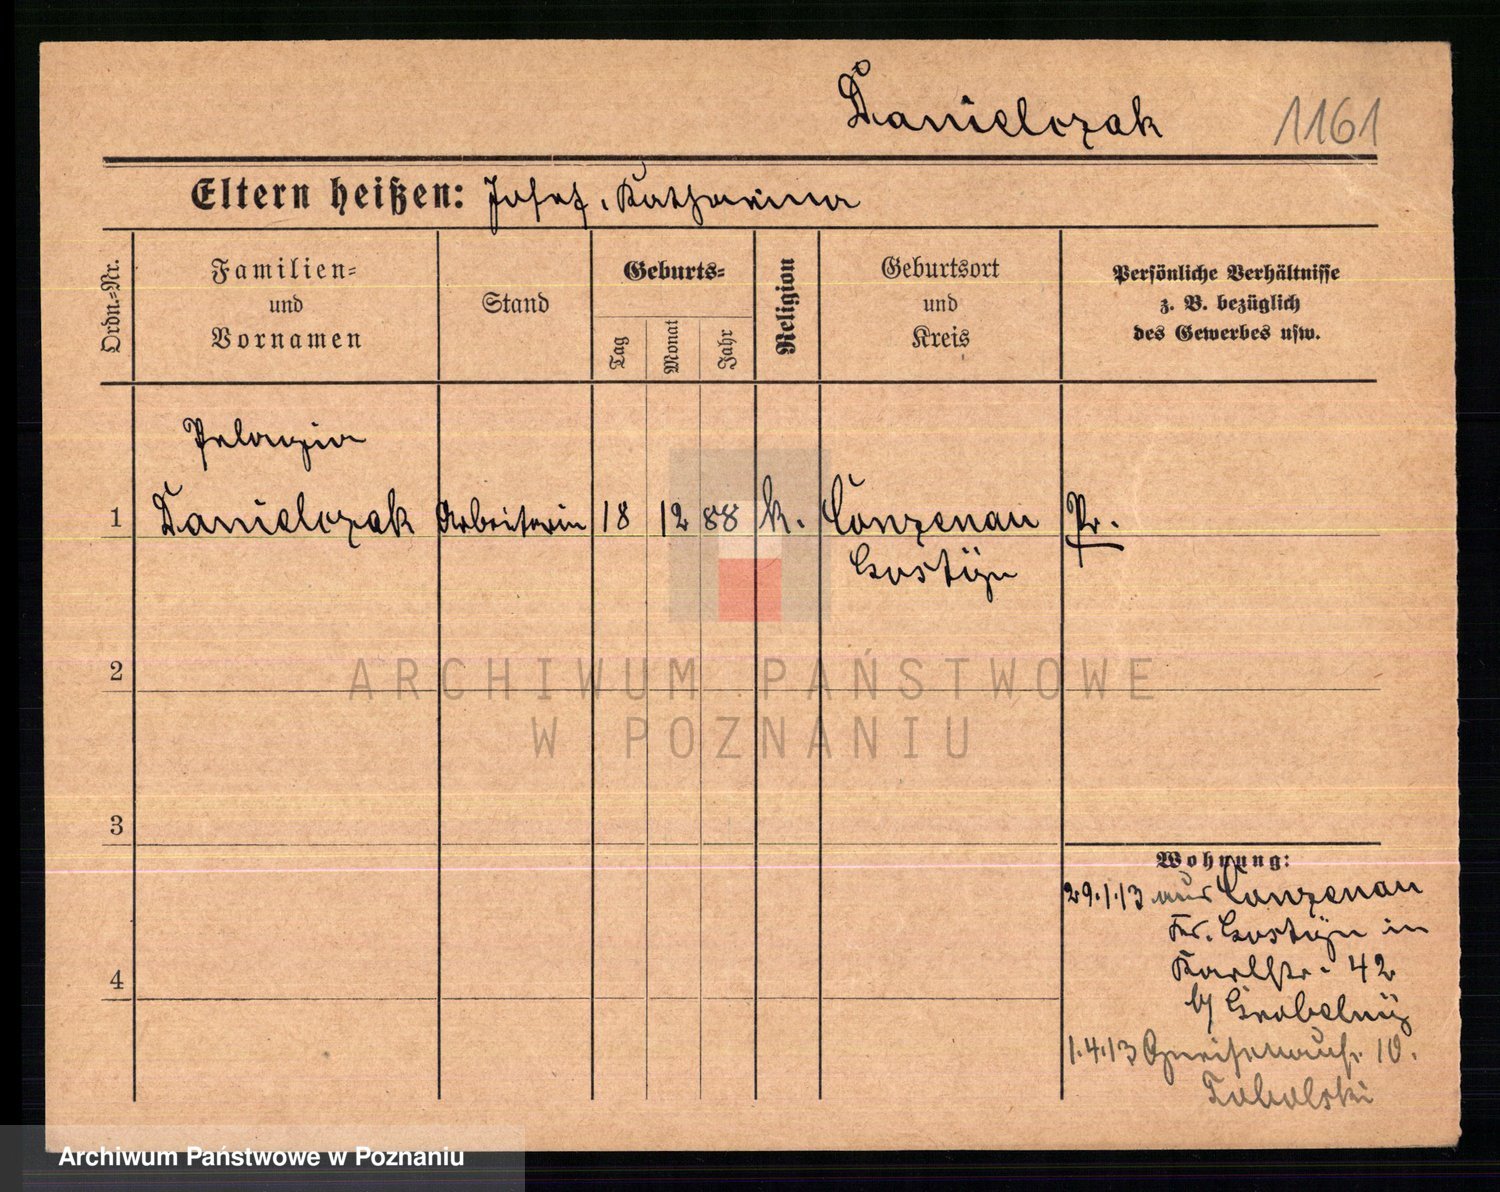 Danielczak 1161
Eltern heißen: Josef, Katharina
Ordn.=Nr.
Familien=
und
Vornamen
Stand
Geburts=
Tag
Monat
Jahr
Religion
Geburtsort
und
Kreis
Persönliche Verhältnisse
z. B. bezüglich
des Gewerbes usw.
Pelagia
1 Danielczak Arbeiterin 18 12 88 k. Conzenau Pr.
Gostijn
ARCHIWUM PAŃSTWOWE
2
W POZNANIU
3
Wohnung:
29.1.13 aus Conzenau
Kr. Gostijn in
Karlstr. 42
4
b/ Grobelnij
1.4.13 10.
Tobolski
Archiwum Państwowe w Poznaniu